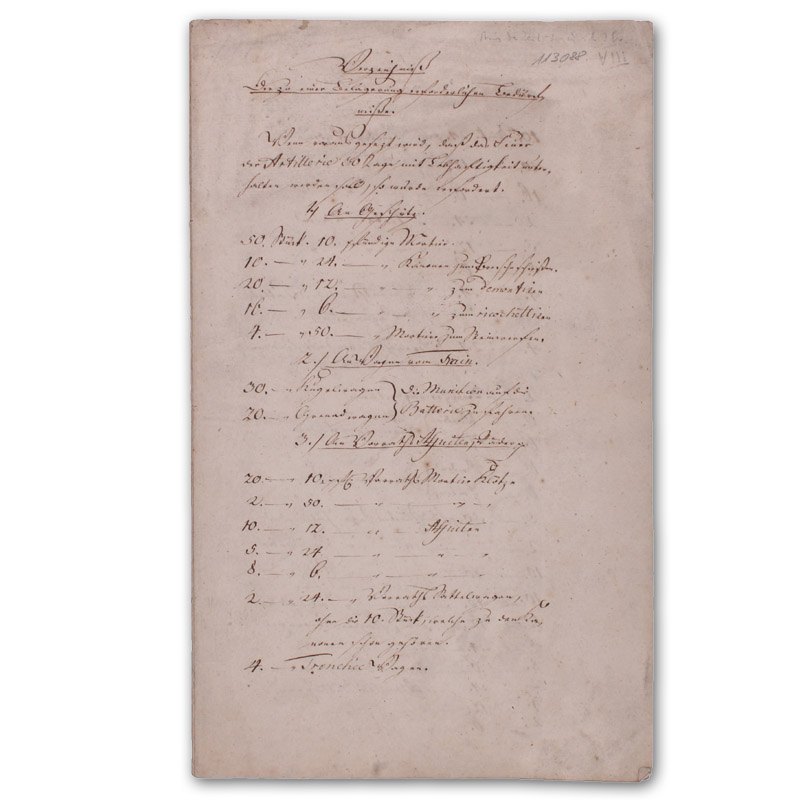 113088
Verzeichniß
Der zu einer Belagerung erforderlichen Bedürf,
niße.
Wenn voraus gesezt wird, daß das Feuer
der Artillerie 30 Tage mit Lebhaftigkeit unter,
halten werden soll, so würde erfordert.
1./ An Geschütz.
50. Stück. 10. pfündige Mortier.
10. — " 24. — " Kanonen zum Brescheschießen.
20. — " 12. — " zum demontiren
16. — " 6. — " zum ricochettiren
4. — " 50. — " Mortier zum Steinwerfen.
2./ An Wagen vom Train.
30. — " Kugelwagen } die Munition auf die
20. — " Grenadwagen } Batterie zu führen.
3./ An Vorraths Affuiten
20. — " 10. Vorraths Mortier Klötze
2. — " 50. — " — "
10. — " 12. — " — Affuiten
5. — " 24 — " — "
8. — " 6. — " — "
2. — " 24. — " Vorraths Sattelwagen,
ohne die 10. Stück, welche zu den Ka,
nonen schon gehören.
4. — " Trenchée Wagen.